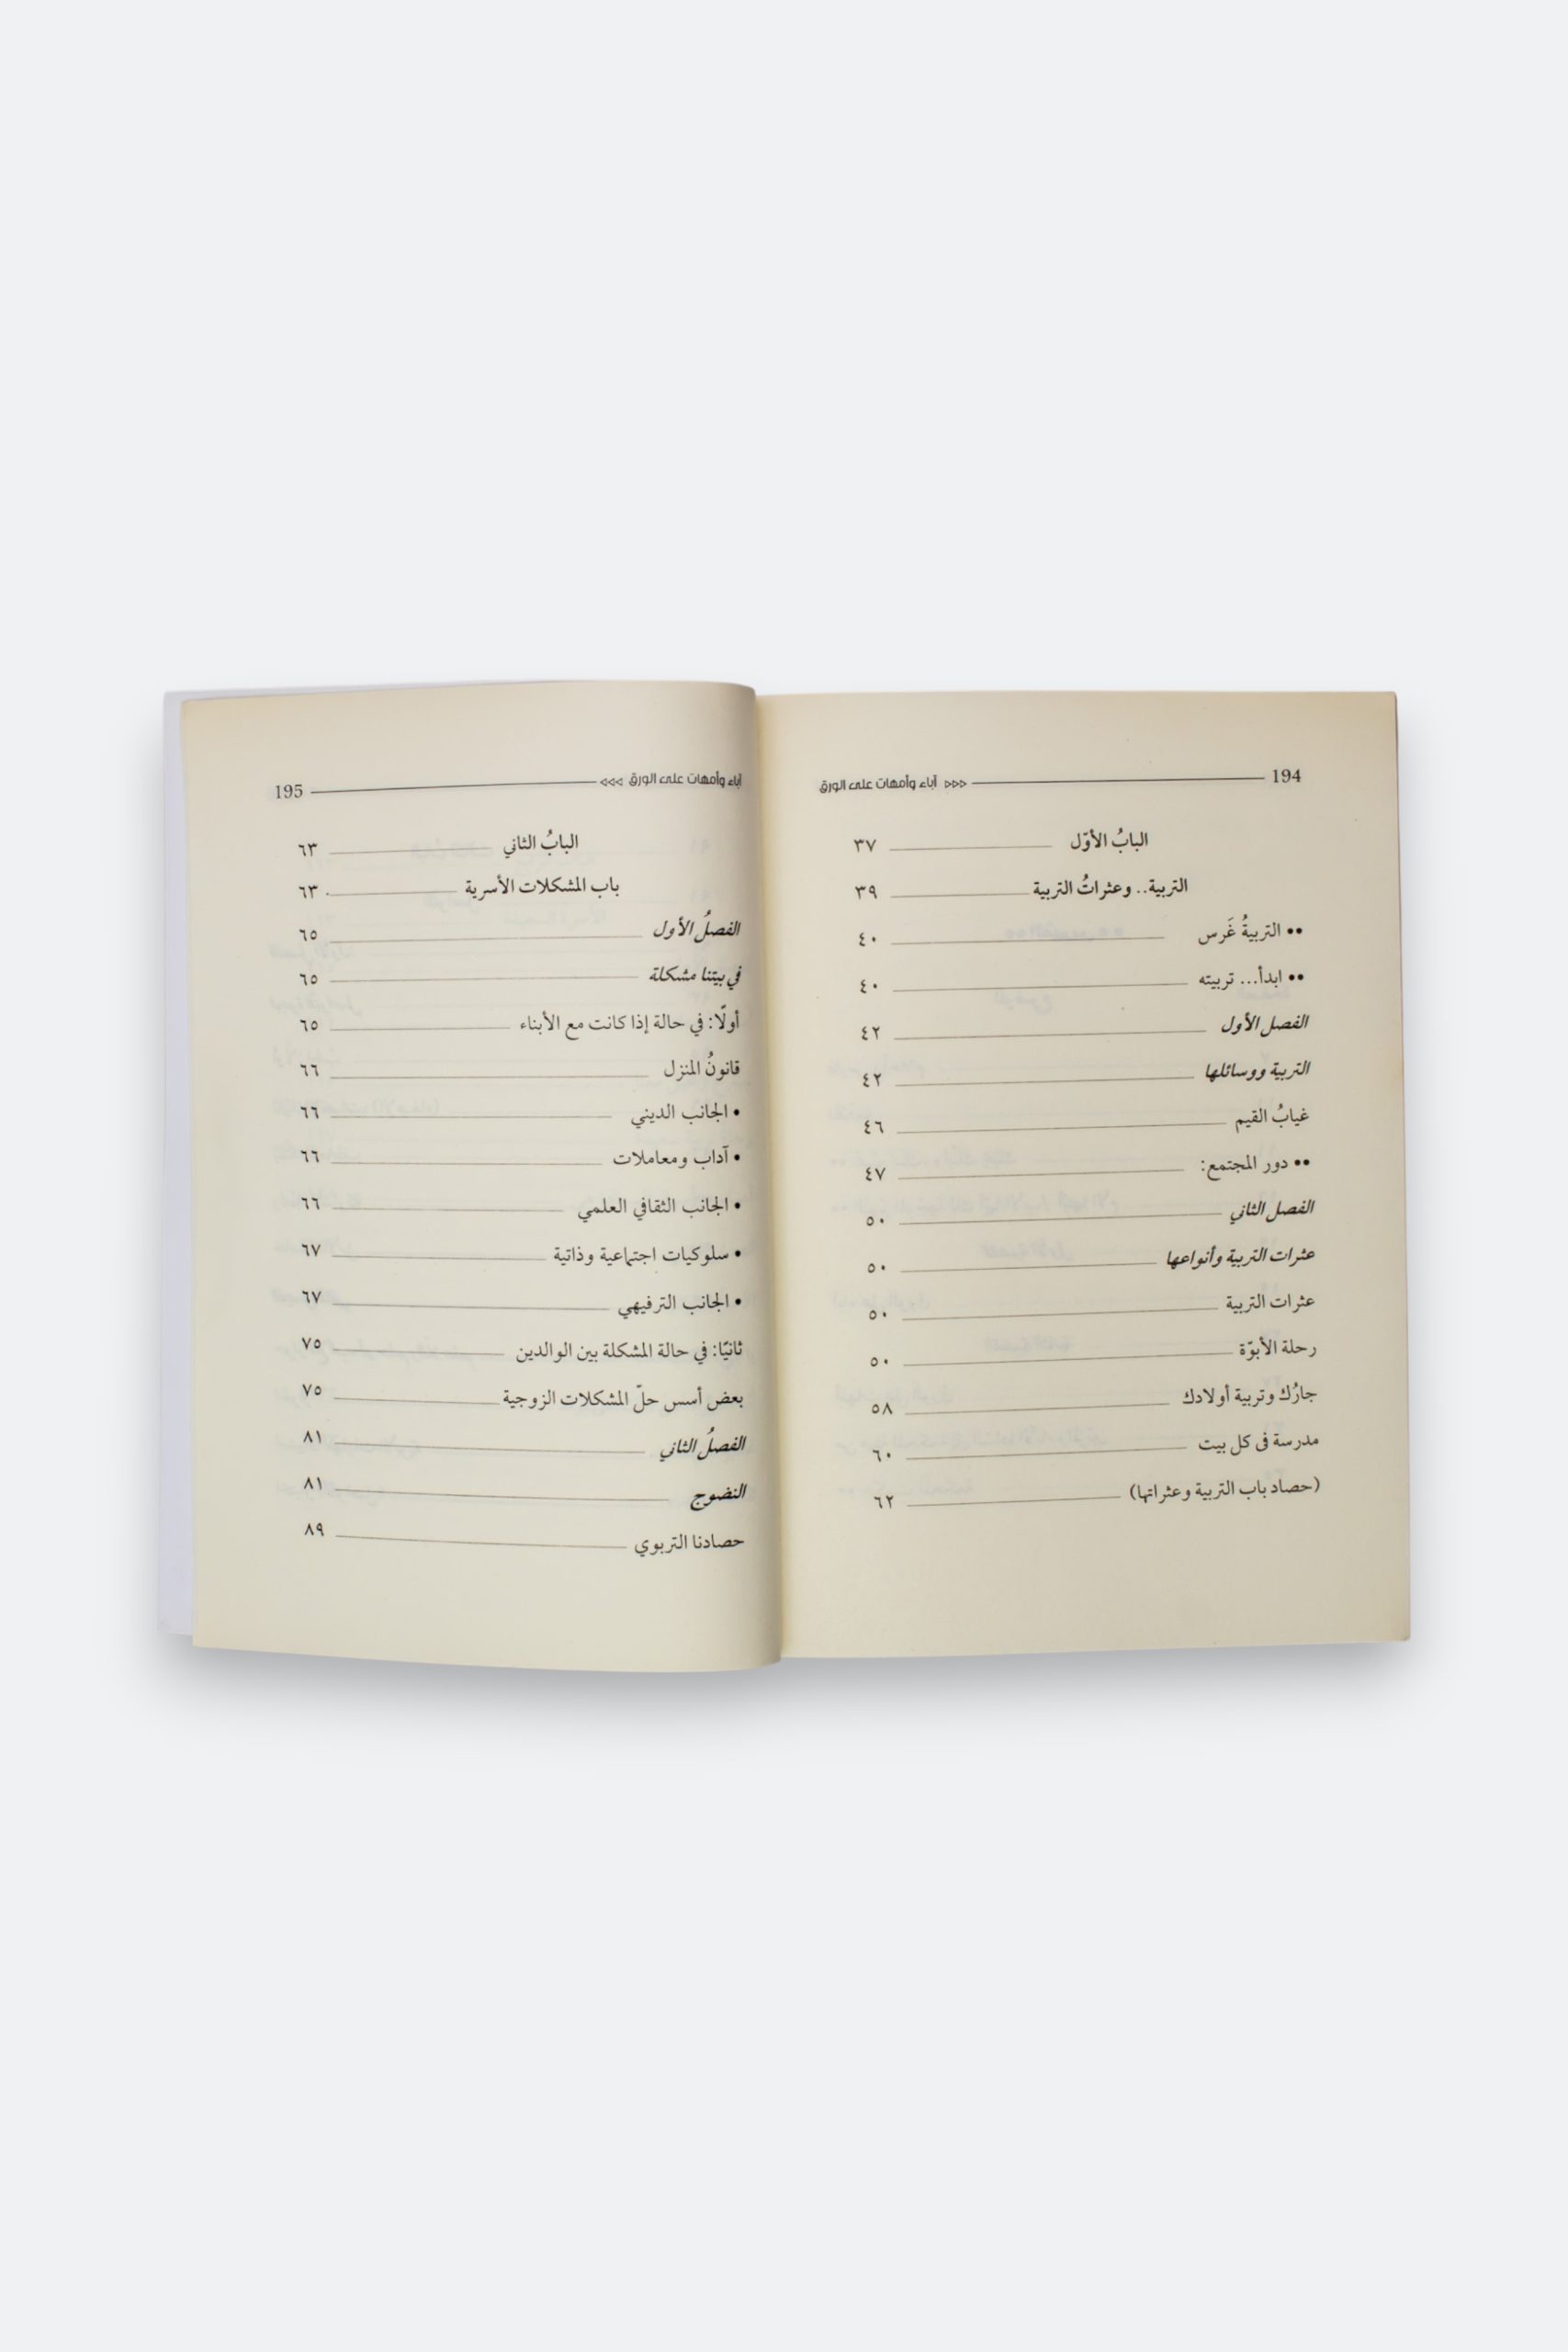 194 آباء وأمهات على الورق
البابُ الأوّل ٣٧
التربية.. وعثراتُ التربية ٣٩
•• التربيةُ غَرس ٤٠
•• ابدأ... تربيته ٤٠
الفصل الأول ٤٢
التربية ووسائلها ٤٢
غيابُ القيم ٤٦
•• دور المجتمع: ٤٧
الفصل الثاني ٥٠
عثرات التربية وأنواعها ٥٠
عثرات التربية ٥٠
رحلة الأبوّة ٥٠
جارُك وتربية أولادك ٥٨
مدرسة فى كل بيت ٦٠
(حصاد باب التربية وعثراتها) ٦٢
آباء وأمهات على الورق 195
البابُ الثاني ٦٣
باب المشكلات الأسرية ٦٣
الفصلُ الأول ٦٥
في بيتنا مشكلة ٦٥
أولًا: في حالة إذا كانت مع الأبناء ٦٥
قانونُ المنزل ٦٦
• الجانب الديني ٦٦
• آداب ومعاملات ٦٦
• الجانب الثقافي العلمي ٦٦
• سلوكيات اجتماعية وذاتية ٦٧
• الجانب الترفيهي ٦٧
ثانيًا: في حالة المشكلة بين الوالدين ٧٥
بعض أسس حلّ المشكلات الزوجية ٧٥
الفصلُ الثاني ٨١
النضوج ٨١
حصادنا التربوي ٨٩